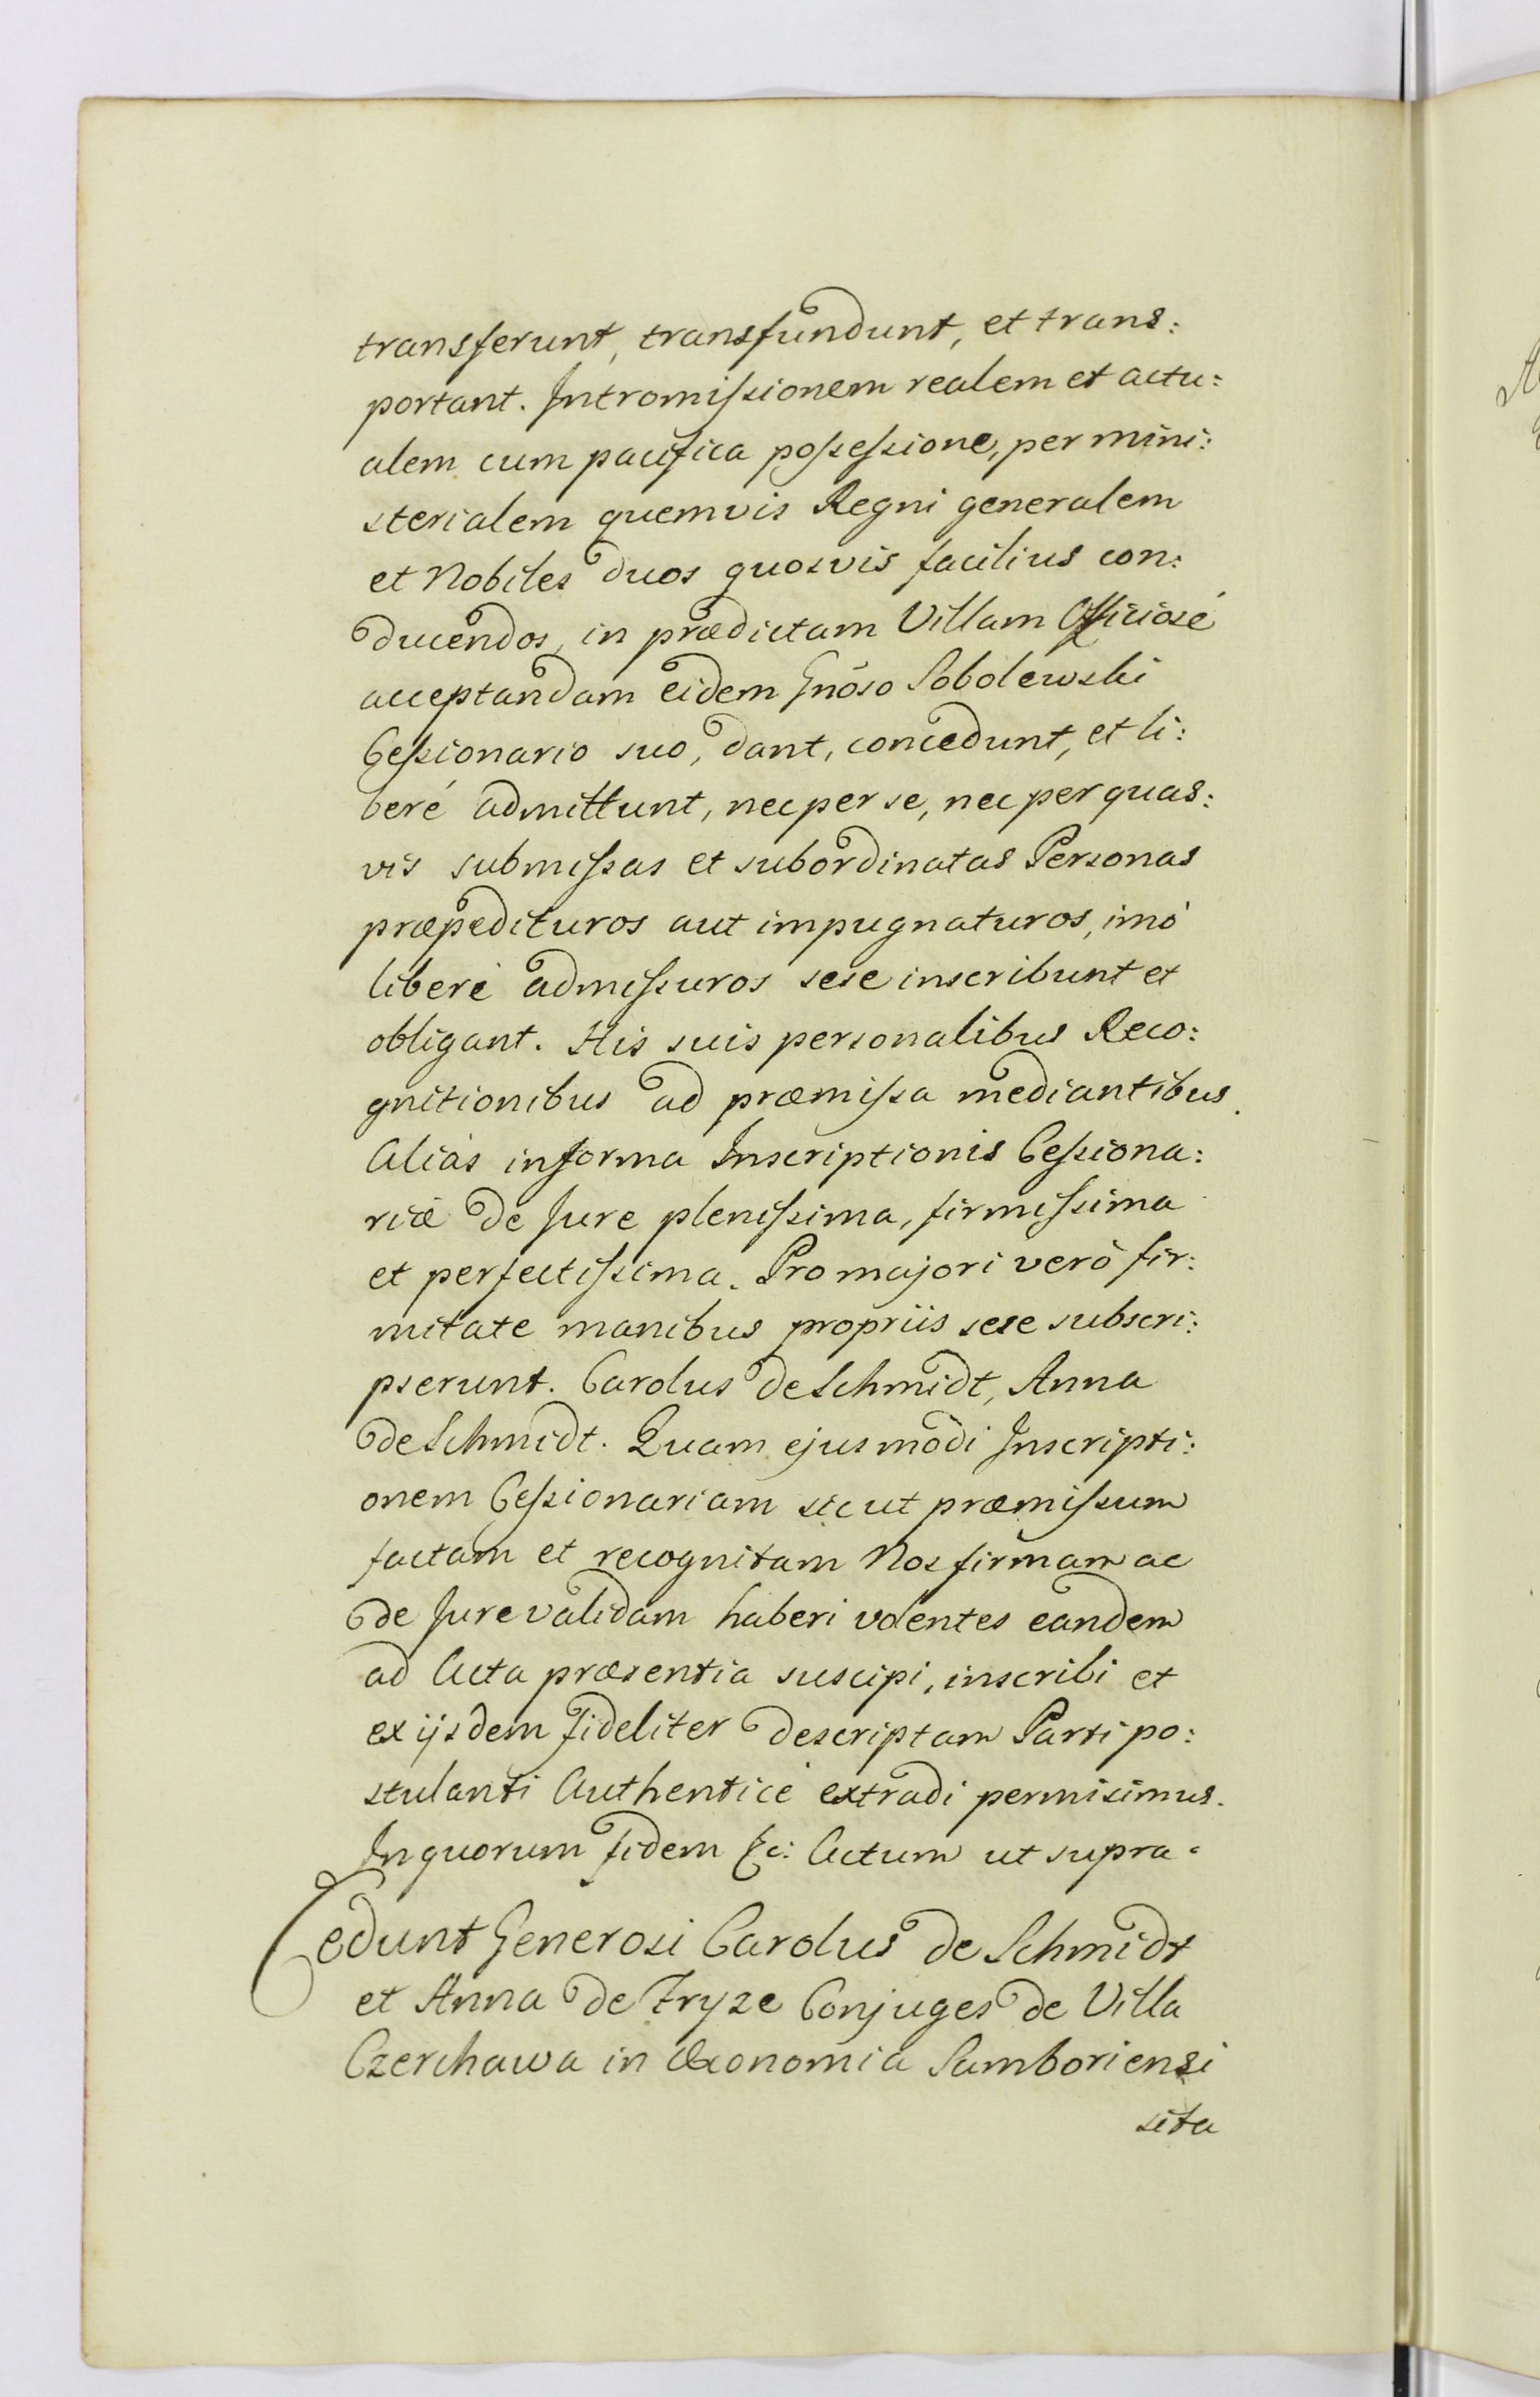 transferunt, transfundunt, et trans:
portant. Intromissionem realem et actu:
alem cum pacifica possessione, per mini:
sterialem quemvis Regni generalem
et Nobiles duos quosvis facilius con:
ducendos, in prædictam Villam Officiosé
acceptandam eidem Gnõso Sobolewski
Cessionario suo, dant, concedunt, et li:
beré admittunt, nec per se, nec per quas:
vis submissas et subordinatas Personas
præpedituros aut impugnaturos, imò
liberé admissuros sese inscribunt et
obligant. His suis personalibus Reco:
gnitionibus ad præmissa mediantibus.
Aliàs in forma Inscriptionis Cessiona:
riæ de Jure plenissima, firmissima
et perfectissima. Pro majori verò fir:
mitate manibus propriis sese subscri:
pserunt. Carolus de Schmidt, Anna
de Schmidt. Quam ejusmodi Inscripti:
onem Cessionariam sicut præmissum
factam et recognitam Nos firmam ac
de Jure validam haberi volentes eandem
ad Acta præsentia suscipi, inscribi et
ex ijsdem fideliter descriptam Parti po:
stulanti Authenticé extradi permisimus.
In quorum fidem &c: Actum ut supra.
Cedunt Generosi Carolus de Schmidt
et Anna de Fryze Conjuges de Villa
Czerchawa in Œconomia Samboriensi
sita